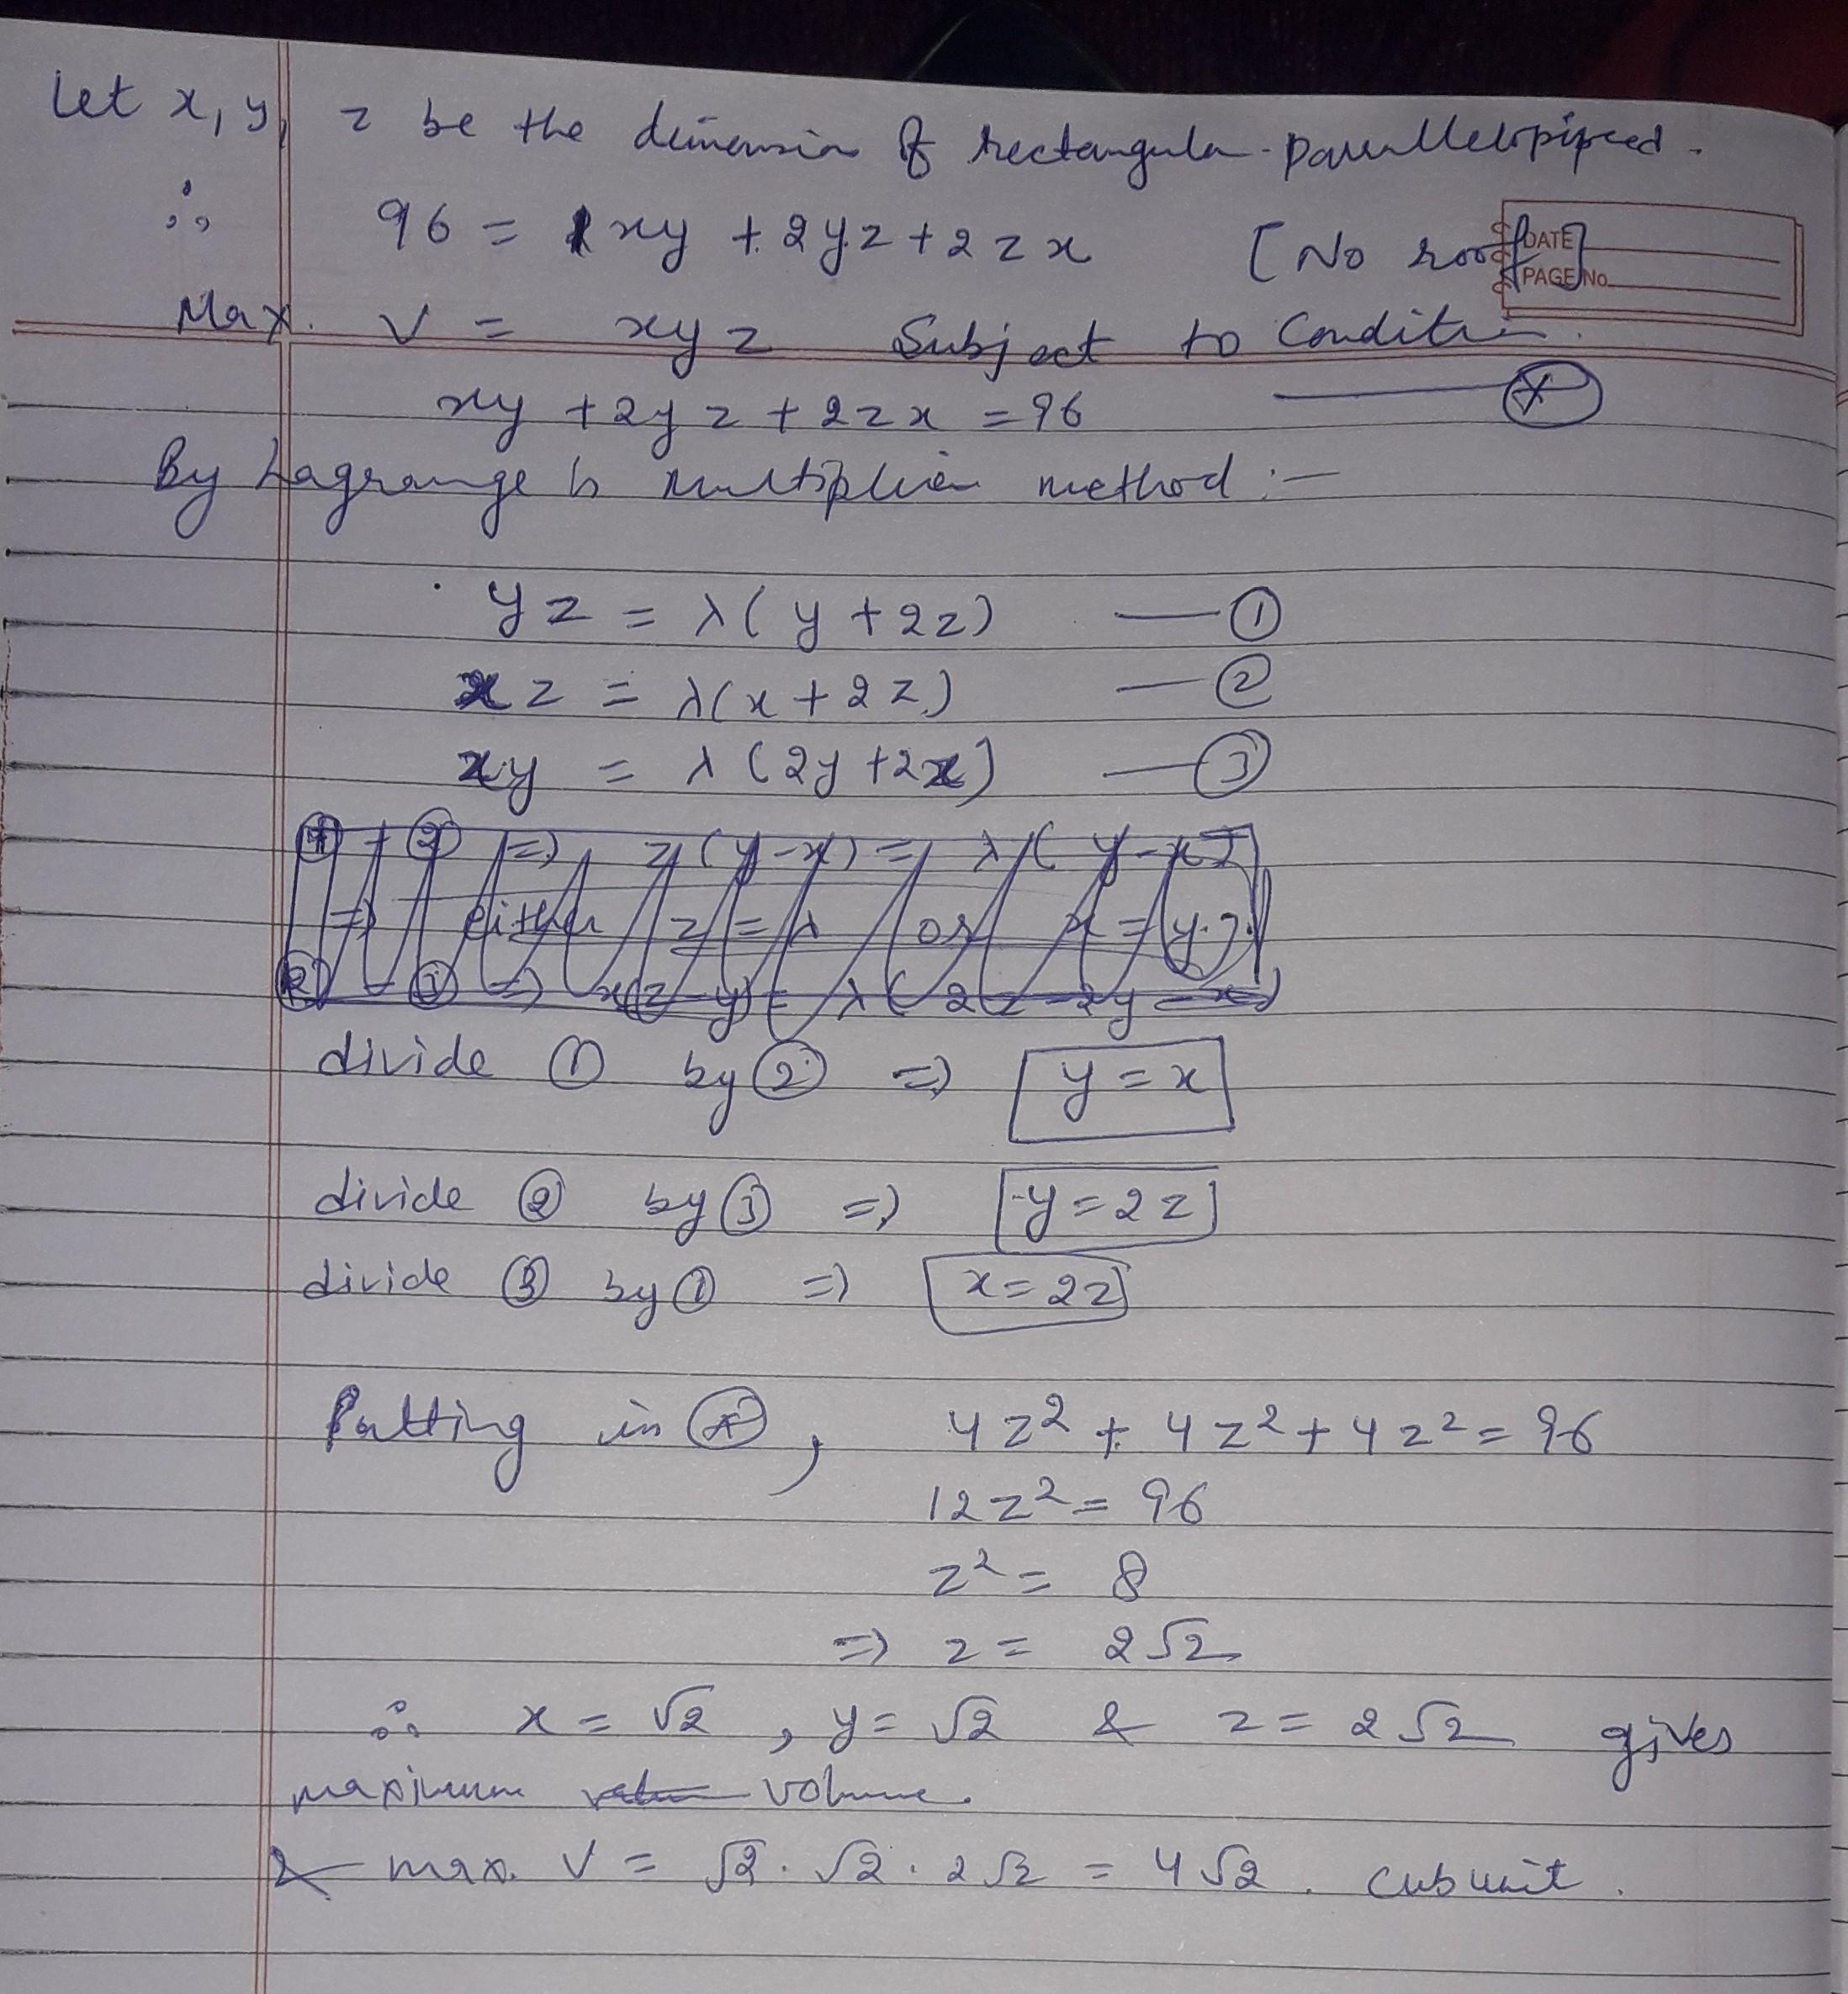 Let x, y, z be the dimension of rectangular parallelopiped.
∴ 96 = xy + 2yz + 2zx [No roof]
DATE
PAGE No.
Max. V = xyz Subject to Condition.
xy + 2yz + 2zx = 96 — (*)
By Lagrange's multiplier method :-
yz = λ(y + 2z) — ①
xz = λ(x + 2z) — ②
xy = λ(2y + 2x) — ③
① - ② => z(y-x) = λ(y-x)
=> either z = λ or x = y
② - ③ => x(z-y) = λ(2z-2y-x)
divide ① by ② => y = x
divide ② by ③ => y = 2z
divide ③ by ① => x = 2z
Putting in (*), 4z² + 4z² + 4z² = 96
12z² = 96
z² = 8
=> z = 2√2
∴ x = √2, y = √2 & z = 2√2 gives
maximum volume.
& max. V = √2 . √2 . 2√2 = 4√2. cub unit.